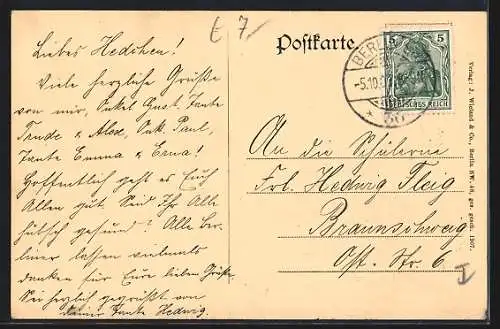 E 7.-
Postkarte
Liebes Hedchen!
Viele herzliche Grüsse
von mir, Onkel Gust, Tante
Trude & Alex, Onk. Paul,
Tante Emma & Erna!
Hoffentlich geht es Euch
Allen gut. Seid Ihr Alle
hübsch gesund? Alle Ber-
liner lassen vielmals
danken für Eure lieben Grüße
Sei herzlich gegrüßt von
Deiner Tante Hedwig.
BERLIN
-5.10.
5 5
DEUTSCHES REICH
An die Schülerin
Frl. Hedwig Fleig
Braunschweig
Ost-Str. 6
I
Verlag: J. Wieland & Co., Berlin SW. 48, ges. gesch. 1907.